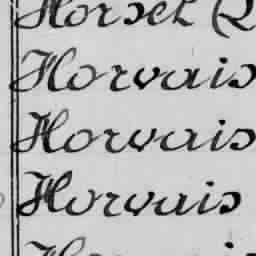 Horsel (2
Horvais
Horvais
Horvais